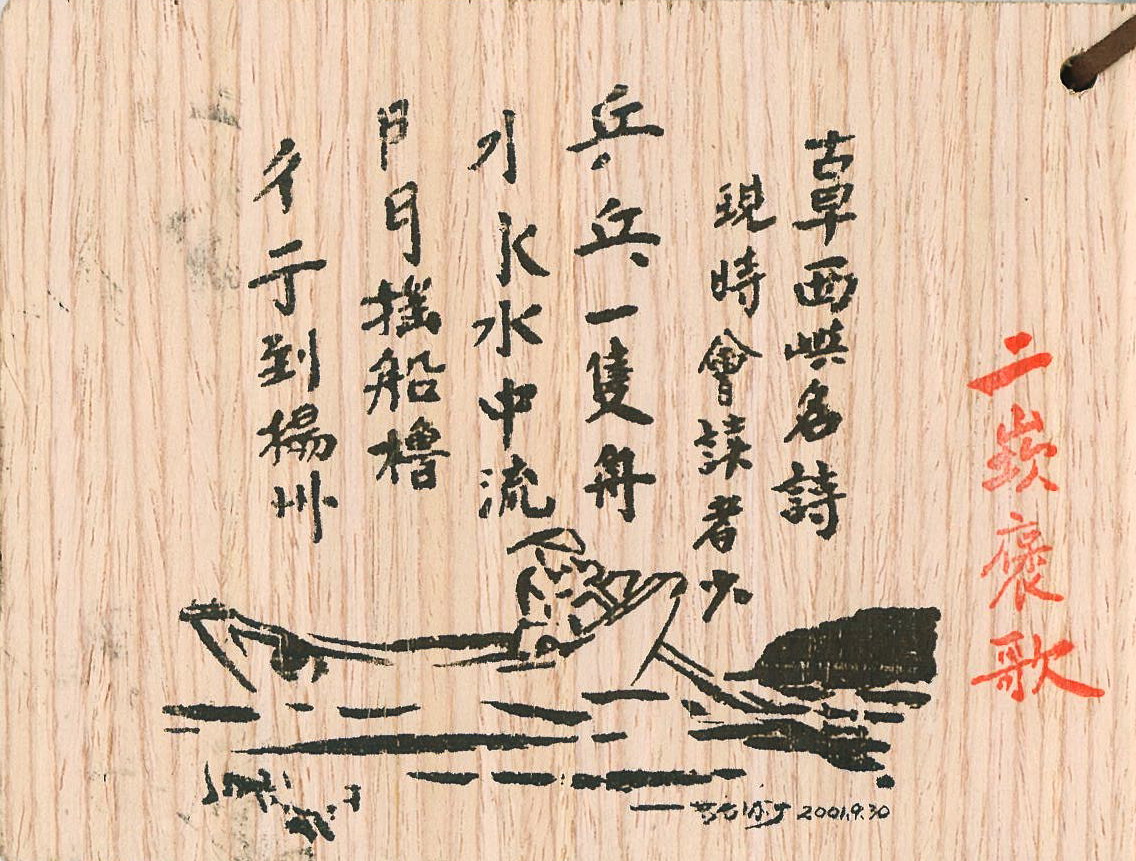 二崁褒歌
古早西嶼名詩
現時會讀者少
乒乓一隻舟
水中流
𠁣𠃛搖船櫓
彳亍到楊州
2001.9.30